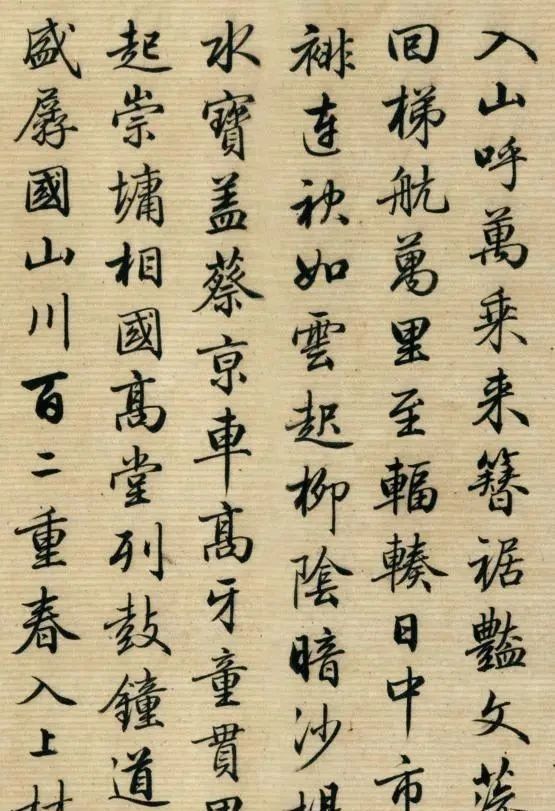 入山呼萬乗来簪裾豔文
回梯航萬里至輻輳日中市
裶連袂如雲起柳陰暗沙堤
水寶盖蔡京車髙牙童貫
起崇墉相國髙堂列鼓鐘道
盛孱國山川百二重春入上林